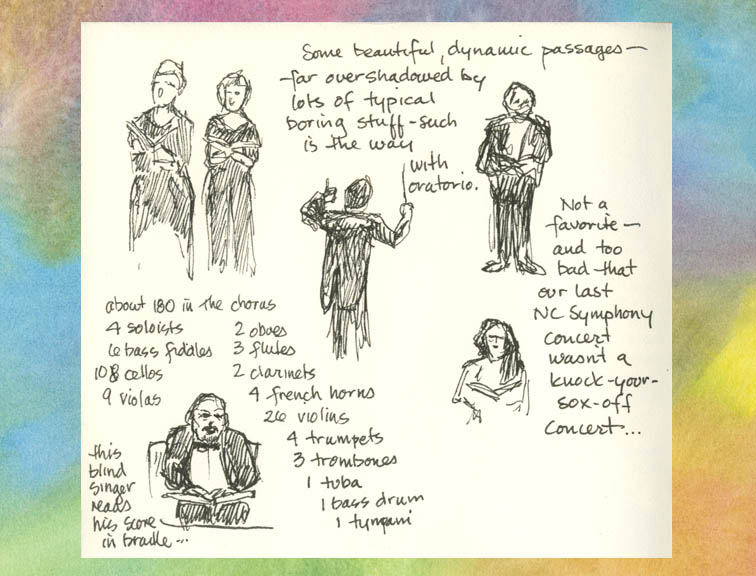 Some beautiful, dynamic passages —
far overshadowed by
lots of typical
boring stuff - such
is the way
with
oratorio.
Not a
favorite —
and too
bad that
our last
NC Symphony
concert
wasn't a
knock-your-
sox-off
concert...
about 180 in the chorus
4 soloists
6 bass fiddles
10 cellos
9 violas
2 oboes
3 flutes
2 clarinets
4 french horns
26 violins
4 trumpets
3 trombones
1 tuba
1 bass drum
1 tympani
this
blind
singer
reads
his score
in braille...